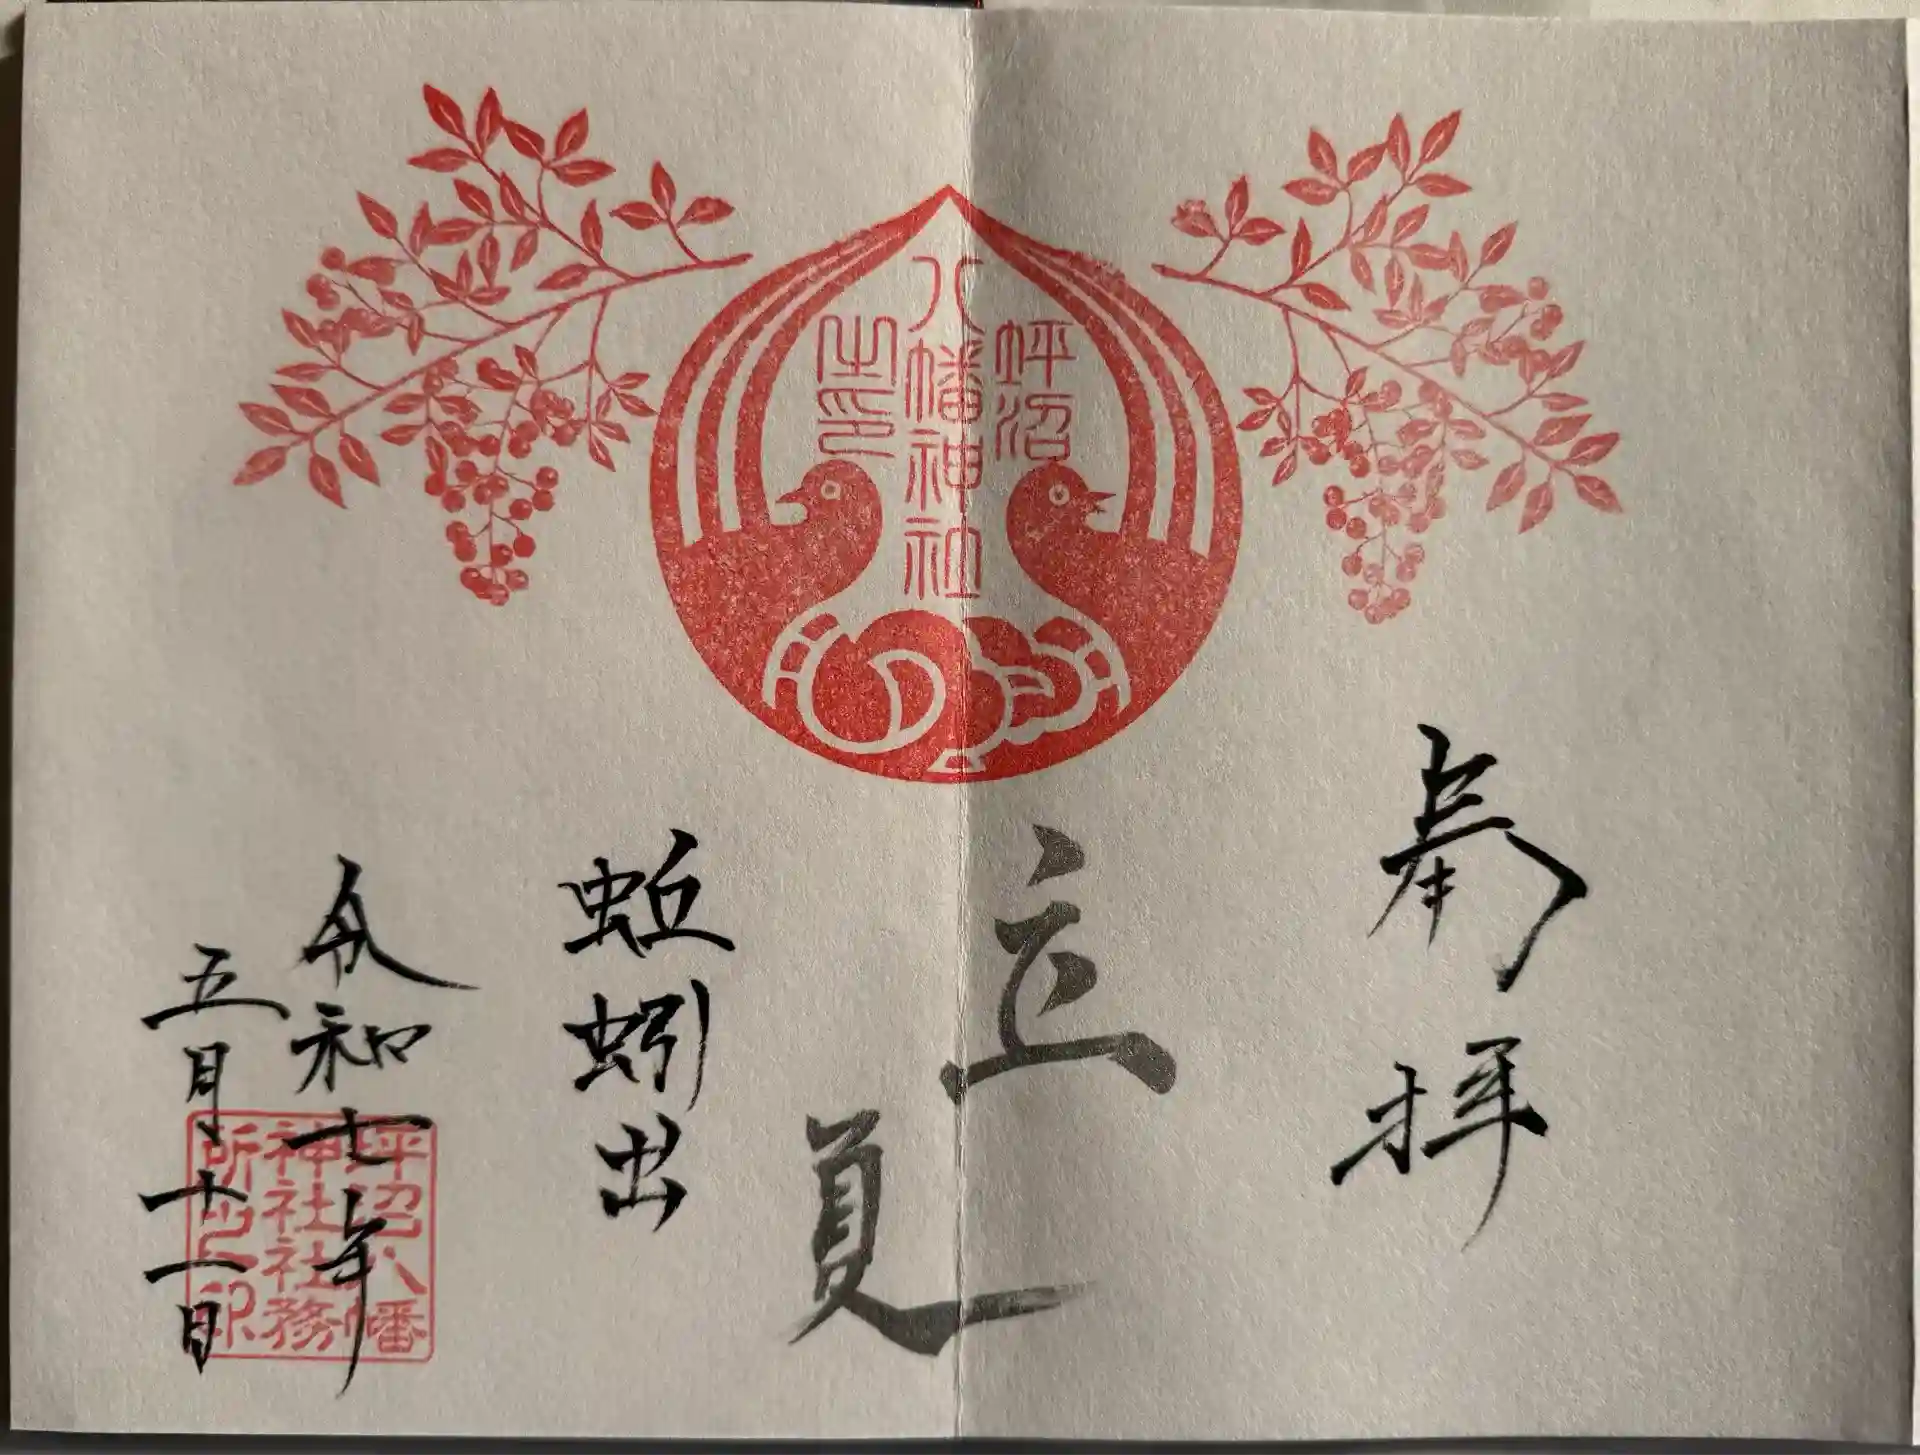 奉拝
立夏
蚯蚓出
令和七年
五月十一日
坪沼
八幡神社
之印
坪沼八幡
神社社務
所之印